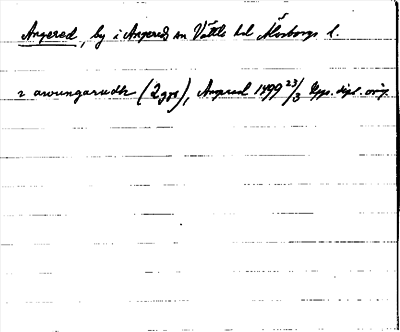 Angered, by i Angered sn Vättle hd Älvsborgs l.
i awungarudh (2 ggr), Angrad 1499 23/3 Upps. dipl. orig.